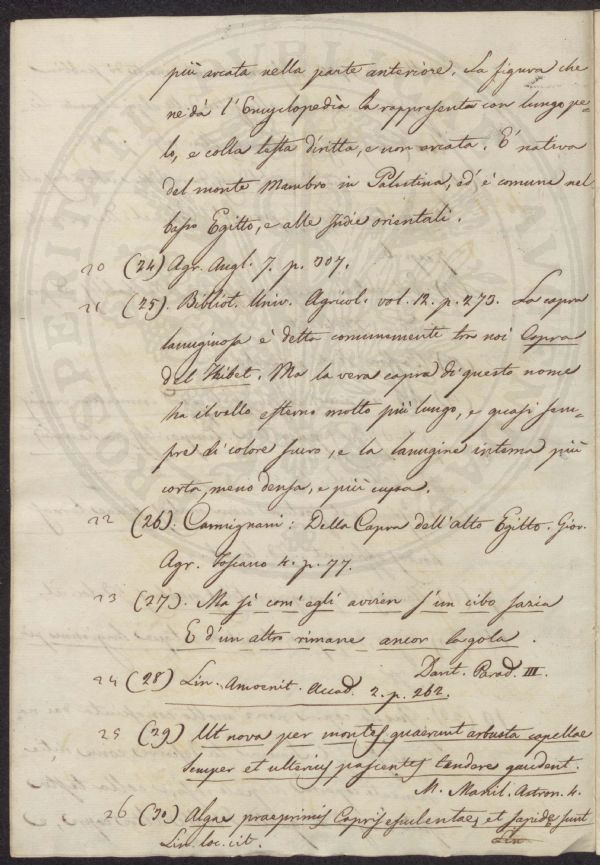 più arcata nella parte anteriore. La figura che
ne dà l'Encyclopedìa la rappresenta con lungo pe-
lo, e colla testa diritta, e non arcata. E' nativa
del monte Mambro in Palestina, ed è comune nel
basso Egitto, e alle Indie orientali.
20 (24) Agr. Angl. 7. p. 307.
21 (25). Bibliot. Univ. Agricol. vol. 12. p. 273. La capra
lanuginosa è detta comunemente tra noi Capra
del Thibet. Ma la vera capra di questo nome
ha il vello esterno molto più lungo, e quasi sem-
pre di colore scuro, e la lanugine interna più
corta, meno densa, e più cupa.
22 (26). Carmignani: Della Capra dell'alto Egitto. Gior.
Agr. Toscano 4. p. 77.
23 (27). Ma sì com'egli avvien s'un cibo sazia
E d'un altro rimane ancor la gola.
Dant. Parad. III.
24 (28) Lin. Amoenit. Accad. 2. p. 262.
25 (29) Ut nova per montes quaerunt arbusta capellae
Semper et ulterius pascentes tendere gaudent.
M. Manil. Astron. 4.
26 (30) Algae praeprimis Capris esculentae, et sapidae sunt
Lin. loc. cit. Lin